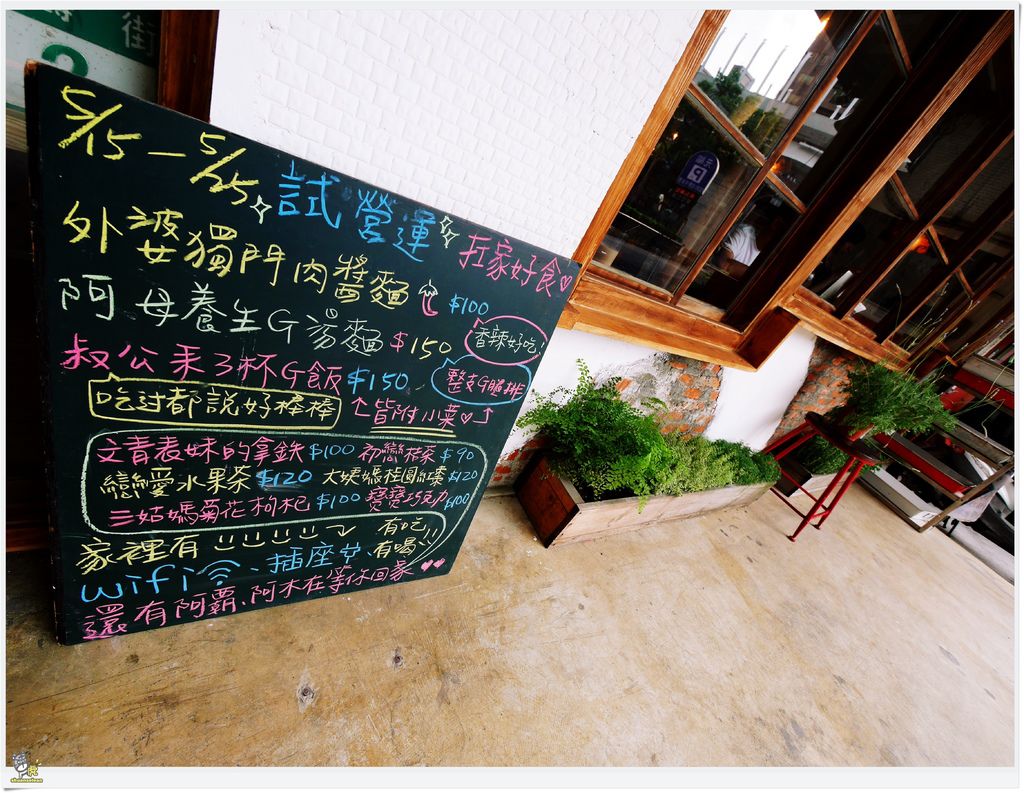 街
5/15 – 5/25 試營運 在家好食♡
外婆獨門肉醬麵 $100
香辣好吃!
阿母養生G湯麵 $150
整支G腿排
叔公釆3杯G飯 $150
↑皆附小菜♡↑
吃过都說好棒棒
文青表妹的拿鉄 $100 初戀抹菜 $90
戀愛水果茶 $120 大姨媽桂圓紅棗 $120
三姑媽菊花枸杞 $100 寶寶巧克力 $100
家裡有 有吃!!
wifi、插座、有喝
還有阿霸、阿木在等你回家♥♥